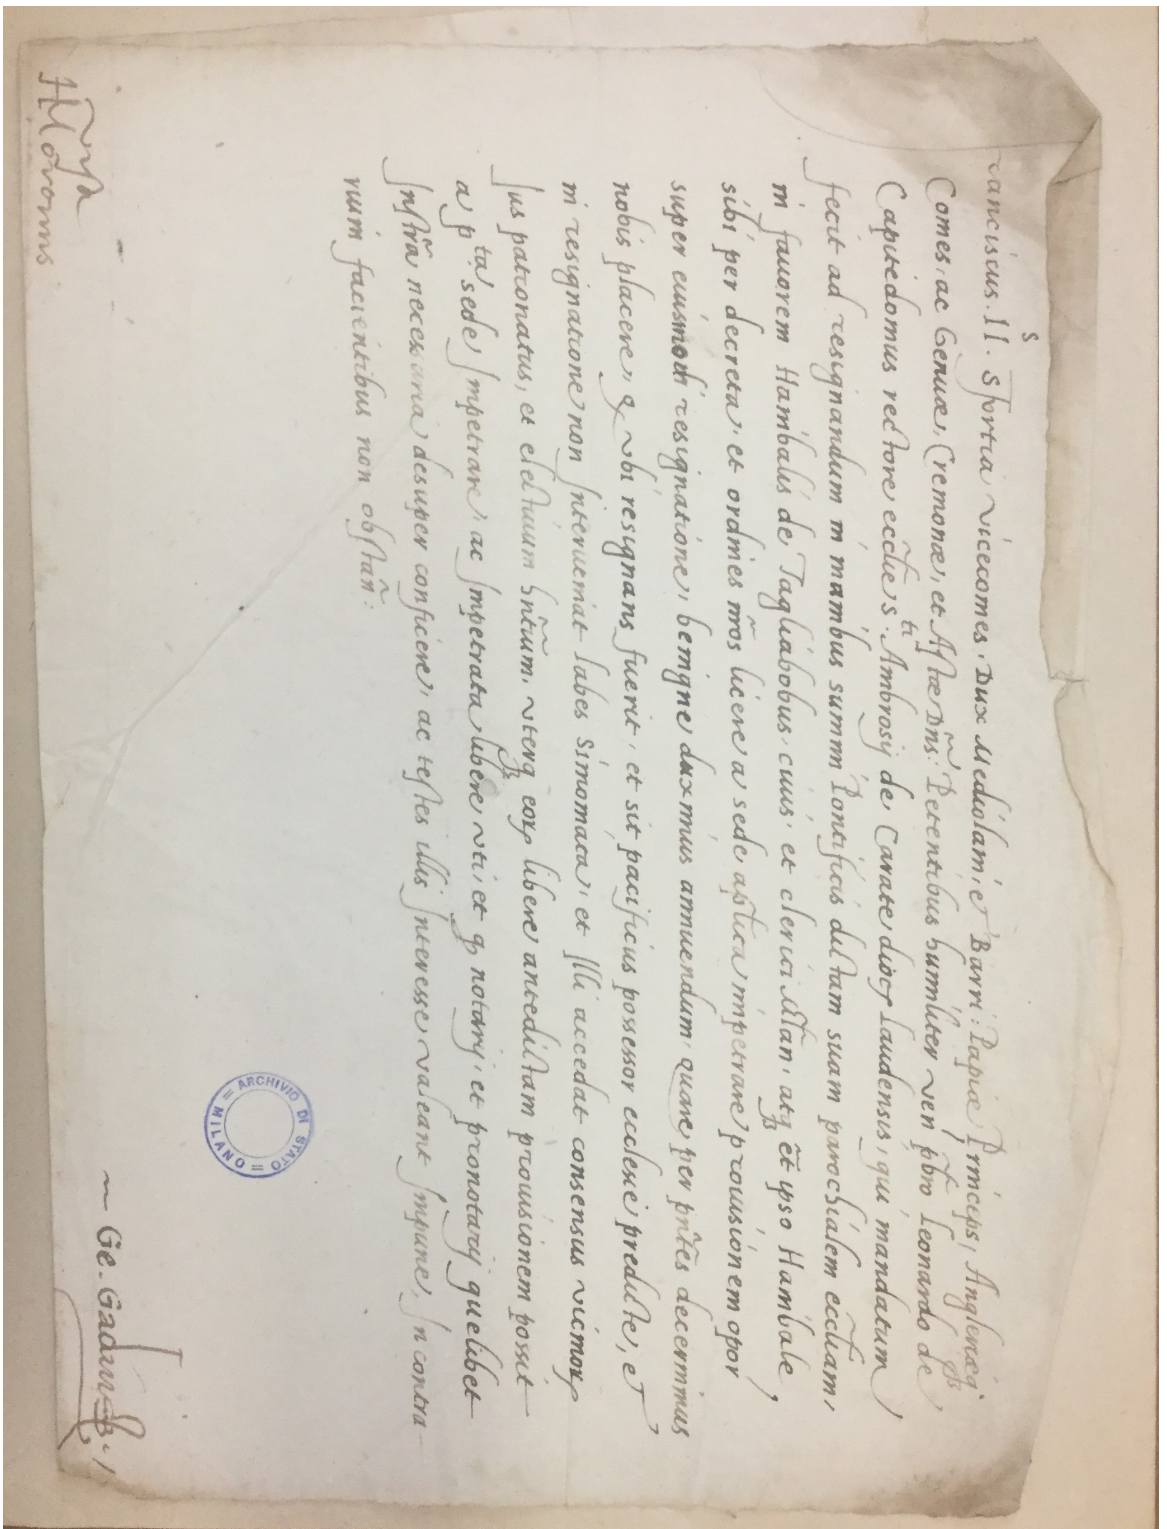 s
ranciscus. II. Sfortia vicecomes. Dux Mediolani, et Barri: Papiæ Princeps, Angleriæq3
Comes, ac Genuæ, Cremonæ, et Astæ Dns̃: Petentibus humiliter ven p̃bro Leonardo de
Capitedomus rectore ecctie s.ti Ambrosij de Carate dioc Laudensis, qui mandatum
fecit ad resignandum in manibus summi Pontificis dictam suam parochialem eccliam,
in fauorem Hanibalis de Tagliabobus. cuius. et clerici Mtan. atq3 et̃ ipso Hanibale,
sibi per decreta, et ordines nr̃os licere a sede aptica impetrare prouisionem opor
super eiusmodi resignatione, benigne duximus annuendum. quare per pñtes decernimus
nobis placere, q vbi resignans fuerit, et sit pacificus possessor ecclesie predicte, et
in resignatione non Interueniat labes Simoniaca, et Illi accedat consensus vicinor
Jus patronatus, et electiuum hñtium. vterq3 eor libere antedictam prouisionem possit
a p.ta sede Impetrare, ac Impetrata libere vti, et q notarij, et pronotarij quelibet
Instra necessaria desuper conficere, ac testes illis Interesse valeant Impune, In contra
rium facientibus non obstañ:
Vta
H Moronus
Ge. Gadius
ARCHIVIO DI STATO = MILANO =